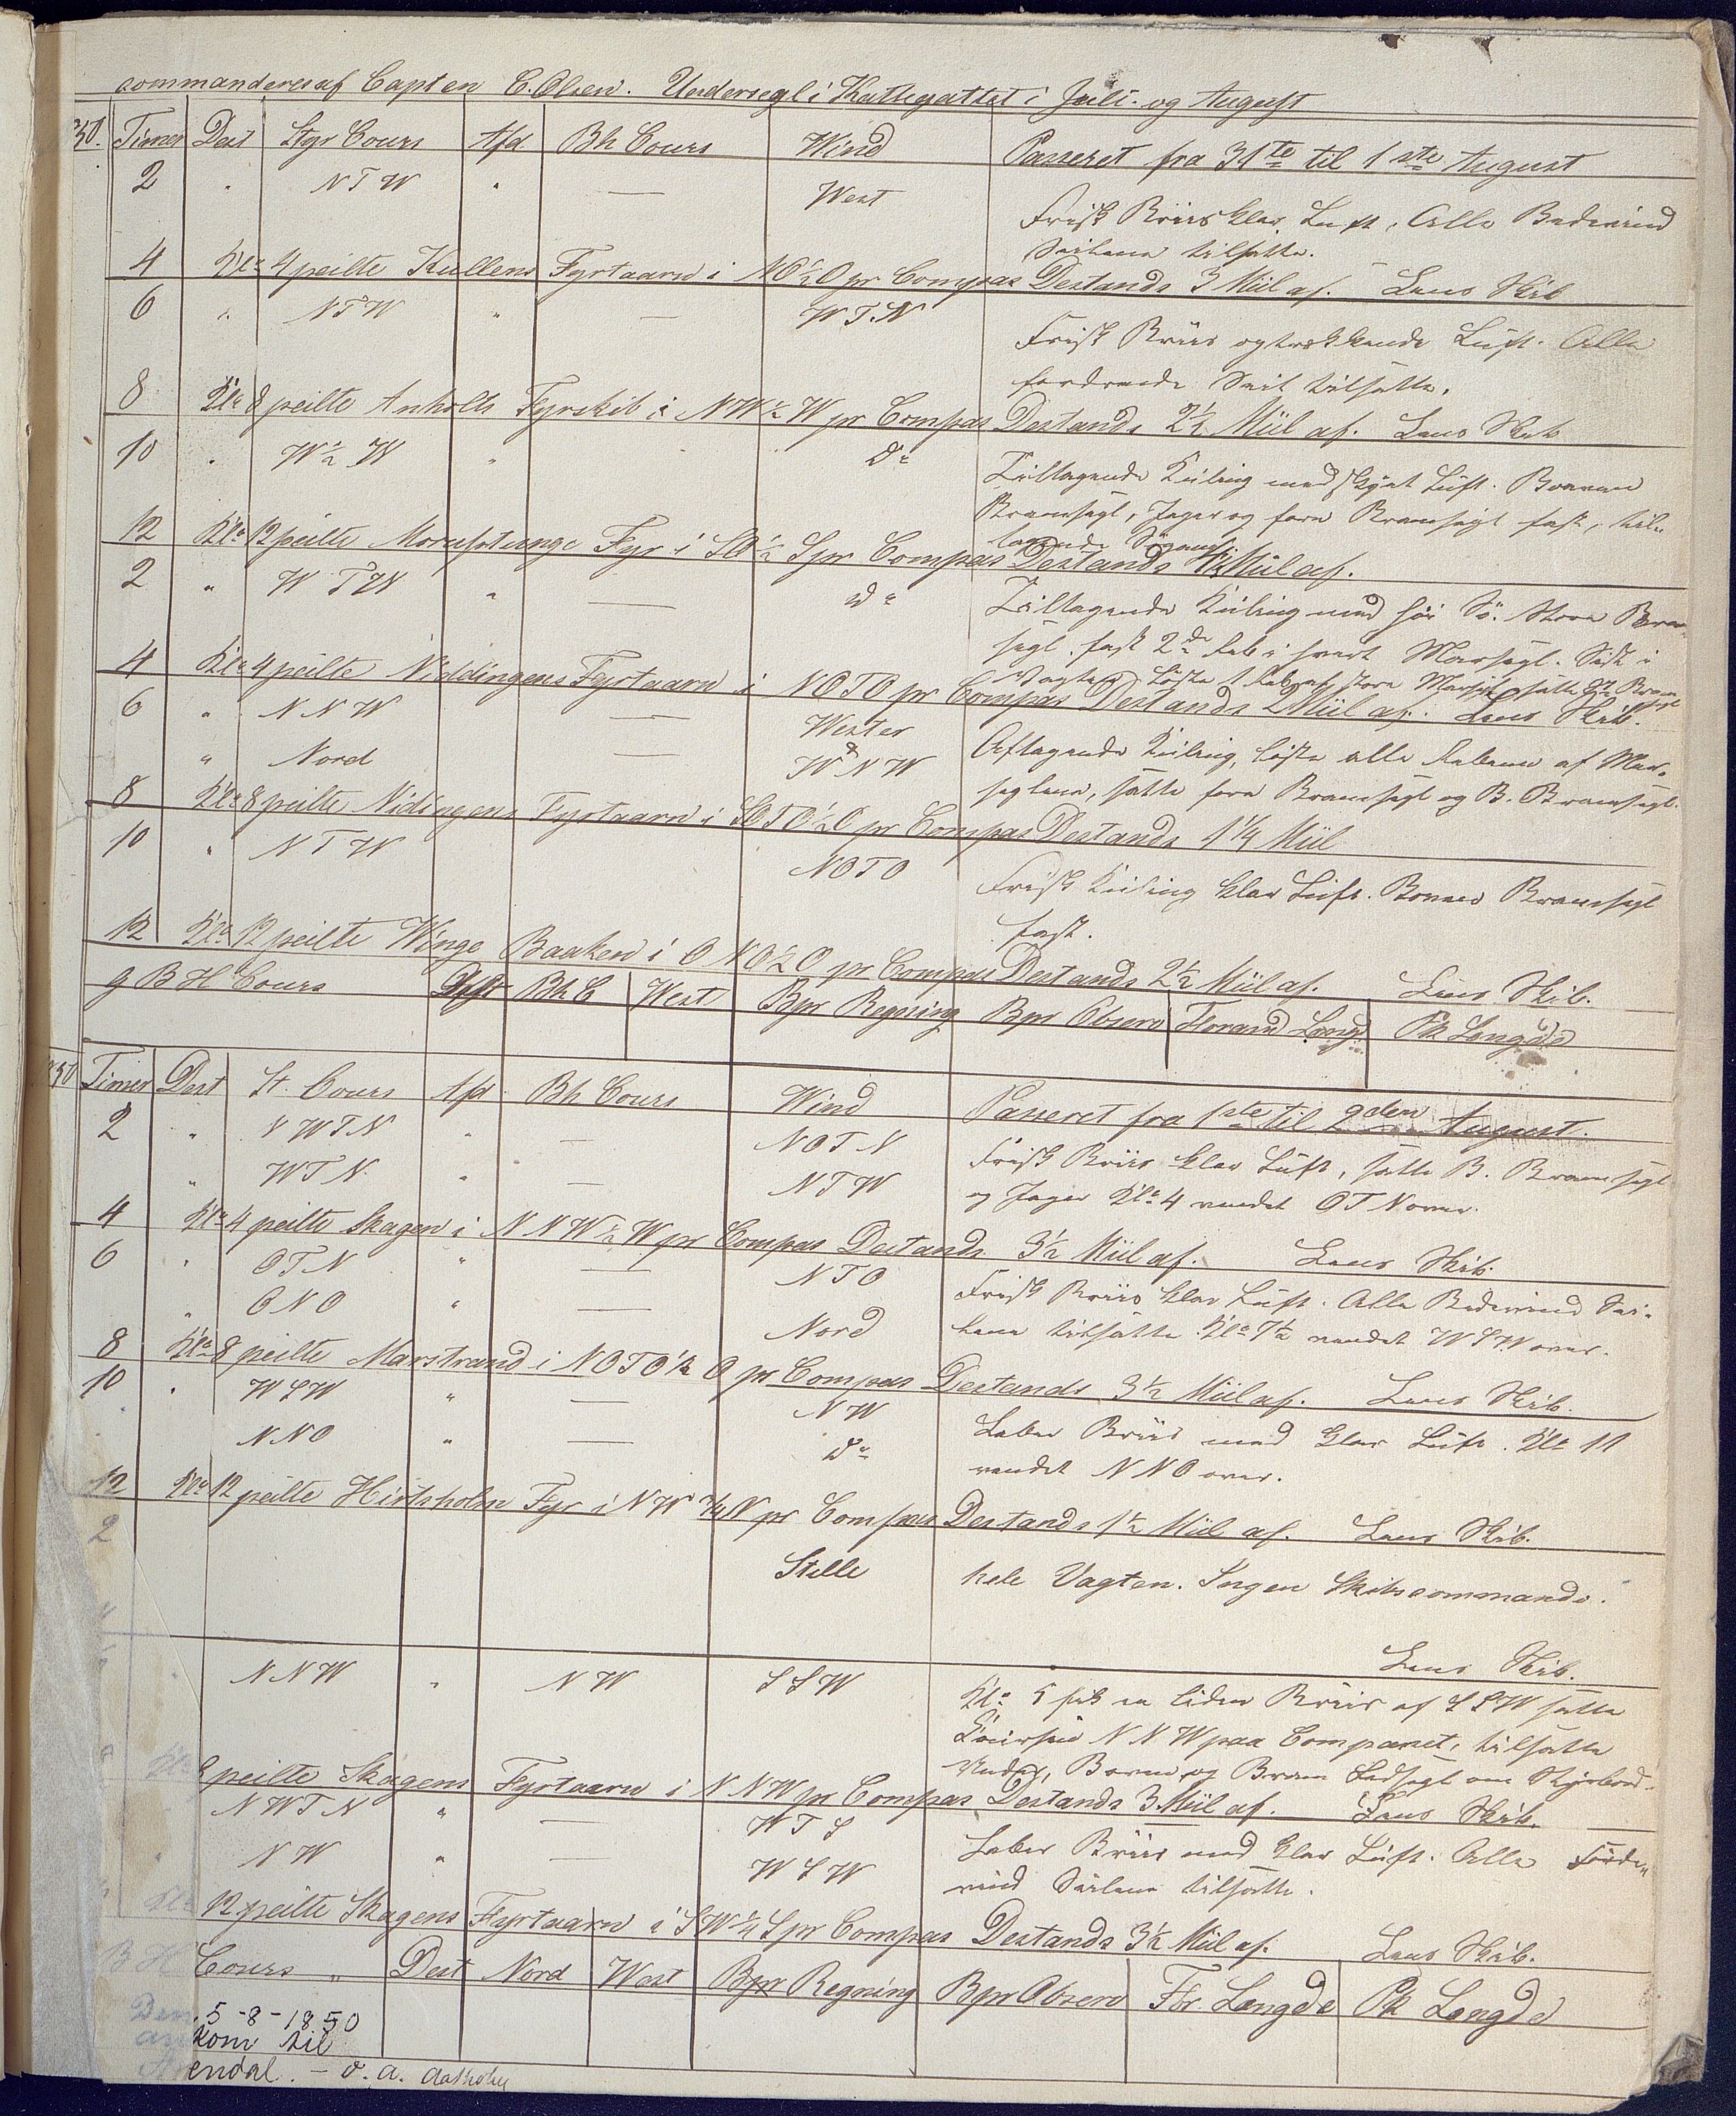 commanderes af Capten C. Olsen. Undersegl i Kattegattet i Juli og August
50. Timer Dest Styr Cours Afd Bh Cours Wind Passeret fra 31te til 1ste August
2 " NTW " — West Frisk Briis klar Luft, Alle Bidevind
Seilene tilsatte.
4 Klo 4 peilte Kullens Fyrtaarn i NO½O pr Compas Destands 3 Miil af. Lens Skib
6 " NTW " — WTN Frisk Briis og trekkende Luft. Alle
fordrende Seil tilsatte.
8 Klo 8 peilte Anholts Fyrskib i NW½W pr Compas Destands 2½ Miil af. Lens Skib
10 " W½W " do Tiltagende Kuling med skyet Luft. Boven
Bramsegl, Jager og fore Bramsegl fast, til
tagende
12 Klo 12 peilte Morupstange Fyr i SO½S pr Compas Destands Miil af.
2 " WTW " — do Tiltagende Kuling med høi Sö. Store Bram
segl fast 2de Reb i hvert Marsegl. Sidst i
Vagten löste 1 Reb af store Marsegl satte St. Bram
segl
4 Klo 4 peilte Niddingens Fyrtaarn i NOTO pr Compas Destands 2 Miil af. Lens Skib.
6 " NNW — Wester Aftagende Kuling, löste alle Rebene af Mer-
" Nord — WNW seglene, satte fore Bramsegl og B. Bramsegl.
8 Klo 8 peilte Nidingens Fyrtaarn i SOTO½O pr Compas Destands 1¼ Miil
10 " NTW NOTO Frisk Kuling klar Luft. Boven Bramsegl
fast.
12 Klo 12 peilte Winge Baaken i ONO½O pr Compas Destands 2½ Miil af. Lens Skib.
g B H Cours Dist Bh C West Bpr Regning Bpr Observ Forand Længd Pk Længde
50 Timer Dest St. Cours Afd Bh Cours Wind Passeret fra 1ste til 2den August.
2 " NWTN " — NOTN Frisk Briis klar Luft, satte B. Bramsegl
" WTN " — NTW og Jager Klo 4 vendet OTN over.
4 Klo 4 peilte Skagen i NNW½W pr Compas Destands 3½ Miil af. Lens Skib.
6 " OTN " — NTO Frisk Briis klar Luft. Alle Bidevind Sei-
" ONO " — Nord lene tilsatte Klo 7½ vendet WSW over.
8 Klo 8 peilte Marstrand i NOTO½O pr Compas Destands 3½ Miil af. Lens Skib.
10 " WSW " — NW Laber Briis med klar Luft. Klo 11
NNO " — do vendet NNO over.
12 Klo 12 peilte Hirtsholm Fyr i NW¾N pr Compas Destands 1½ Miil af. Lens Skib.
2 Stille hele Vagten. Ingen Skibscommando.
Lens Skib.
" NNW " NW SSW Klo 5 fik en liden Briis af SSW satte
NNW paa Compasset, tilsatte
Under, Boven og Bram Ledsegl om Styrbord.
8 peilte Skagens Fyrtaarn i NNW pr Compas Destands 3 Miil af. Lens Skib.
NWTN " — WTS Laber Briis med klar Luft. Alle
" NW " — WSW vind Seilene tilsatte.
Klo 12 peilte Skagens Fyrtaarn i SW¼S pr Compas Destands 3½ Miil af. Lens Skib.
B H Cours " Dest Nord West Bpr Regning Bpr Observ Fbr. Længde Pk Længde
Den 5-8-1850
ankom til
Arendal. –